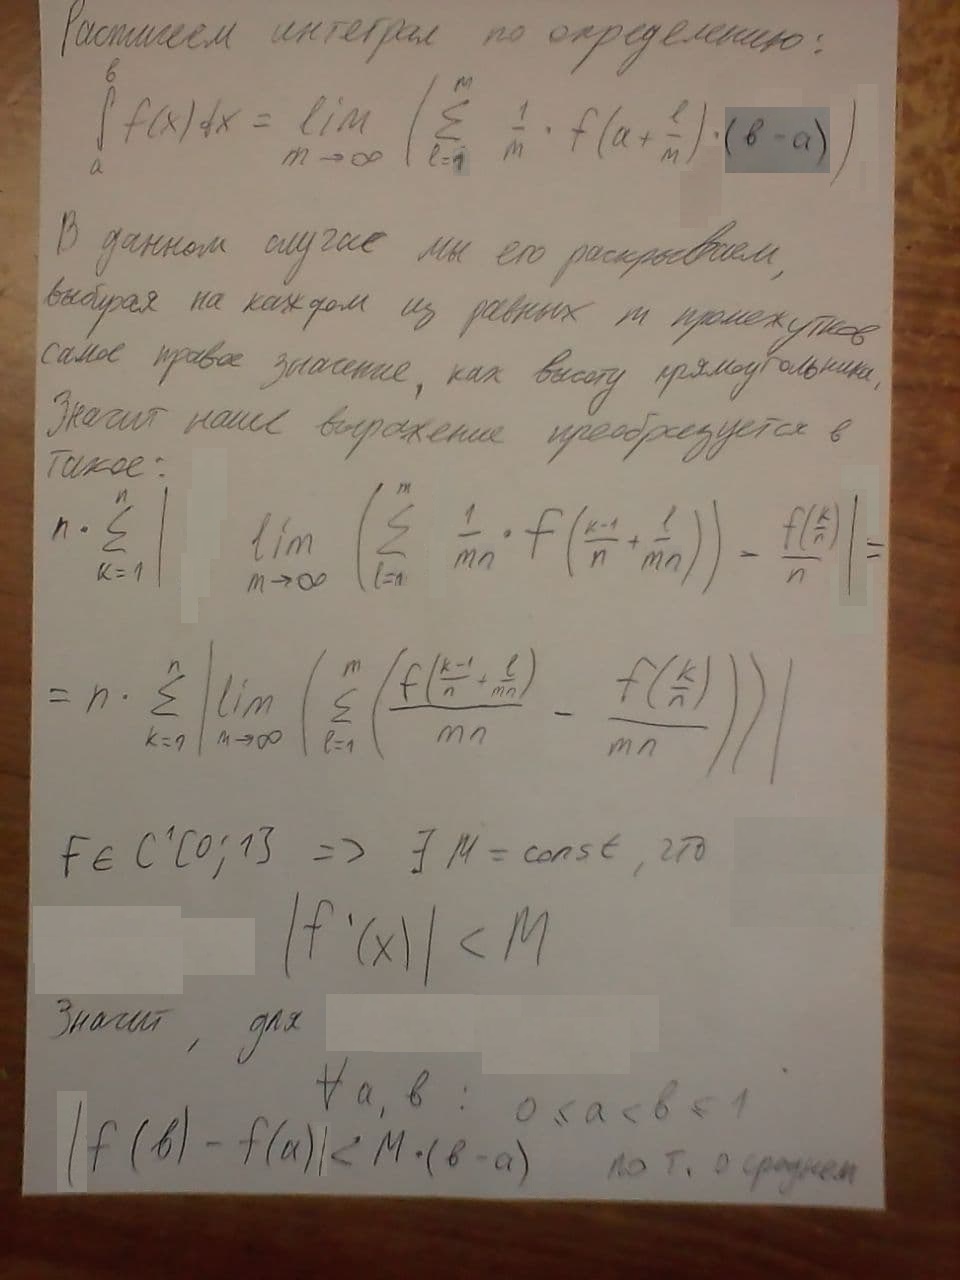 Распишем интеграл по определению:
∫_a^в f(x)dx = lim_{m→∞} ( Σ_{l=1}^{m} 1/m · f(a + l/m) · (в - a) )
В данном случае мы его раскрываем,
выбирая на каждом из равных m промежутков
самое правое значение, как высоту прямоугольника.
Значит наше выражение преобразуется в
такое:
n · Σ_{k=1}^{n} | lim_{m→∞} ( Σ_{l=1}^{m} 1/mn · f( (k-1)/n + l/mn ) ) - f(k/n)/n | =
= n · Σ_{k=1}^{n} | lim_{m→∞} ( Σ_{l=1}^{m} ( f( (k-1)/n + l/mn )/mn - f(k/n)/mn ) ) |
F ∈ C'[0;1] => ∃ M = const, что
|f'(x)| < M
Значит, для
∀ a, в : 0 ≤ a < в ≤ 1
|f(в) - f(a)| < M·(в-a) по т. о среднем